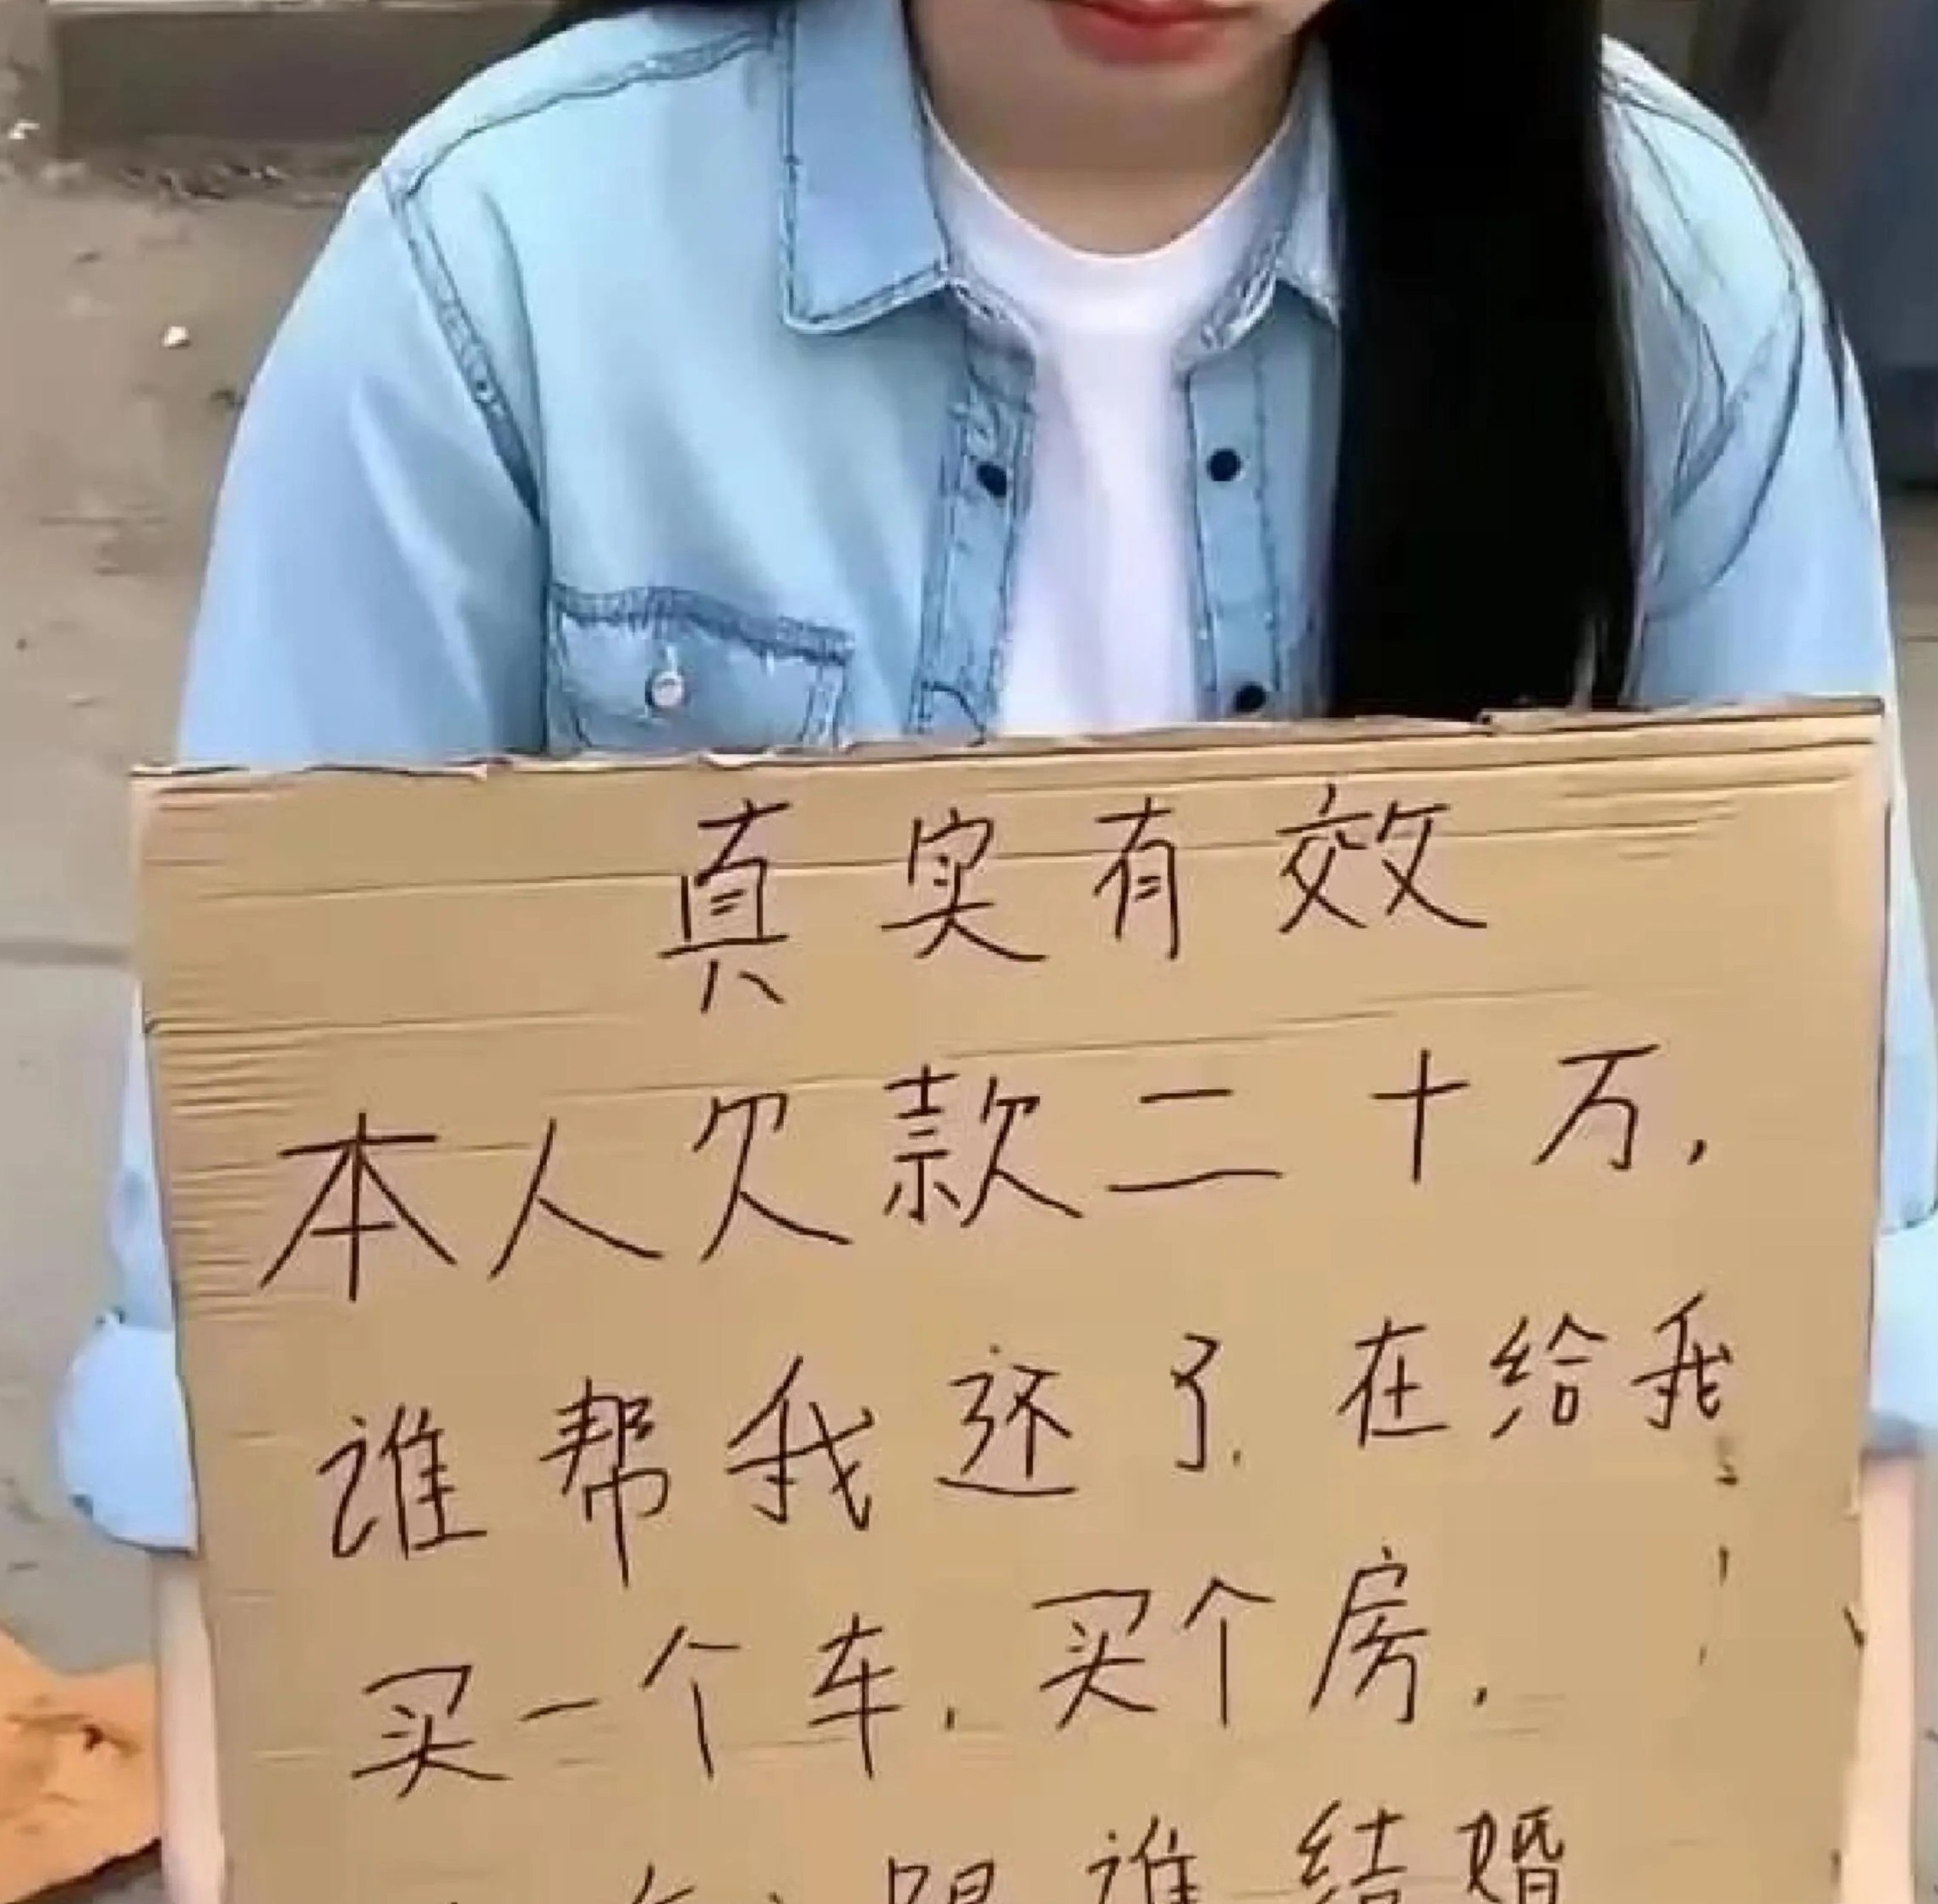 真实有效
本人欠款二十万,
谁帮我还了.在给我
买一个车.买个房.
跟谁结婚